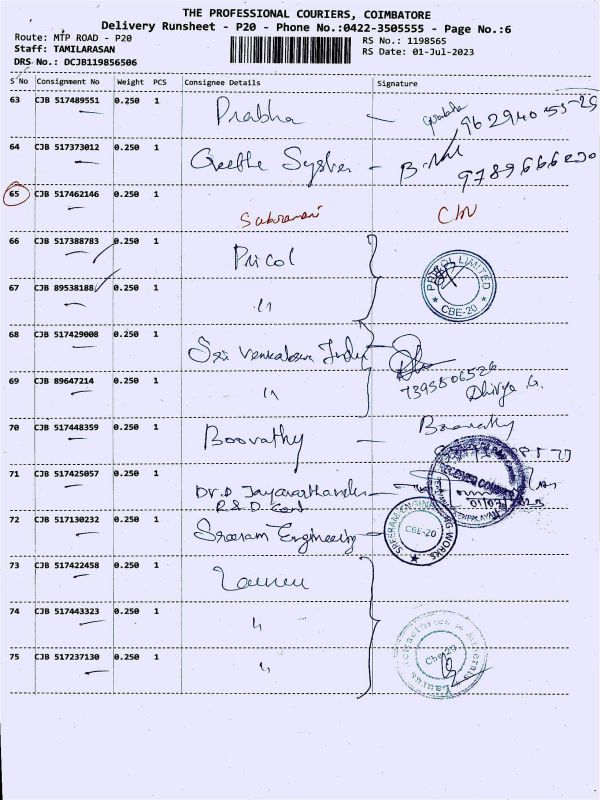 THE PROFESSIONAL COURIERS, COIMBATORE
Delivery Runsheet - P20 - Phone No.:0422-3505555 - Page No.:6
Route: MTP ROAD - P20
RS No.: 1198565
Staff: TAMILARASAN
RS Date: 01-Jul-2023
DRS No.: DCJB119856506
S No Consignment No Weight PCS Consignee Details Signature
63 CJB 517489551 0.250 1 Prabha
64 CJB 517373012 0.250 1 Geetha
65 CJB 517462146 0.250 1
66 CJB 517388783 0.250 1 Pricol
PRICOL LIMITED
CBE-20
67 CJB 89538188 0.250 1 "
68 CJB 517429008 0.250 1 Sri Venkateswa
7395806526
69 CJB 89647214 0.250 1 "
Dhivya G.
70 CJB 517448359 0.250 1 Boovathy Boovathy
71 CJB 517425057 0.250 1 Dr. D.
R & D Cent
72 CJB 517130232 0.250 1 Sreeram Engineering
SREERAM ENGINEERING WORKS
CBE-20
73 CJB 517422458 0.250 1
74 CJB 517443323 0.250 1 "
75 CJB 517237130 0.250 1 "
Cbe-20